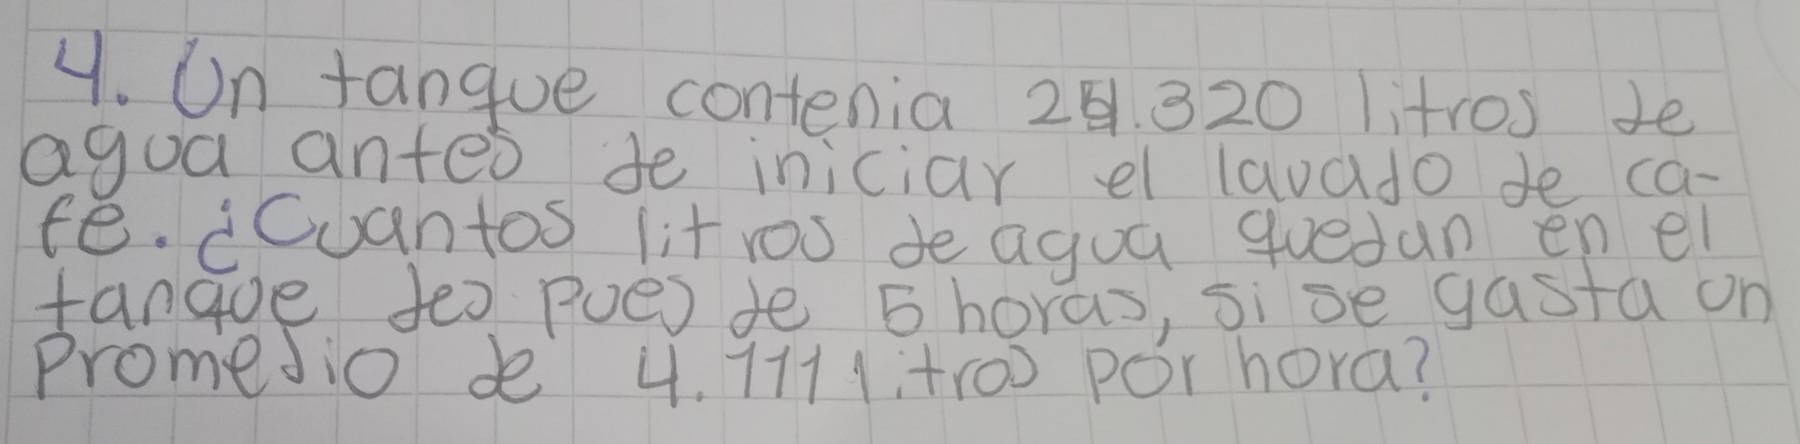 4. Un tanque contenia 25.320 litros de
agua antes de iniciar el lavado de ca-
fe. ¿Cuantos litros de agua quedan en el
tanque des pues de 5 horas, si se gasta un
Promedio de 4.111 litros por hora?